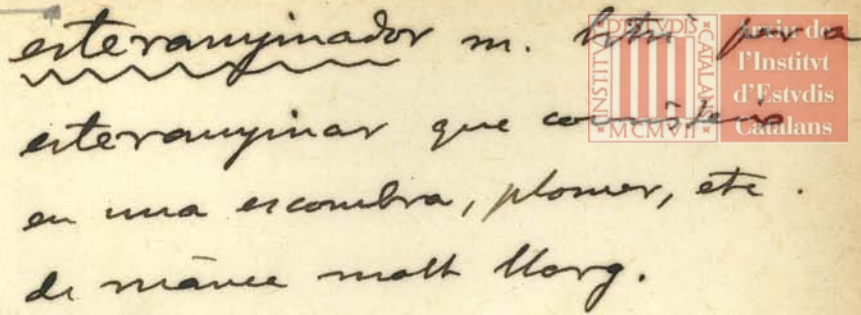 esteranyinador m. Estri per a
esteranyinar que consisteix
en una escombra, plomer, etc.
de mànec molt llarg.
INSTITVT D'ESTVDIS CATALANS
MCMVII
Arxiu de
l'Institvt
d'Estvdis
Catalans